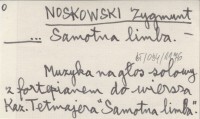 0
NOSKOWSKI Zygmunt
... Samotna limba. –
Muzyka na głos solowy
z fortepianem do wiersza
Kaz. Tetmajera "Samotna limba".